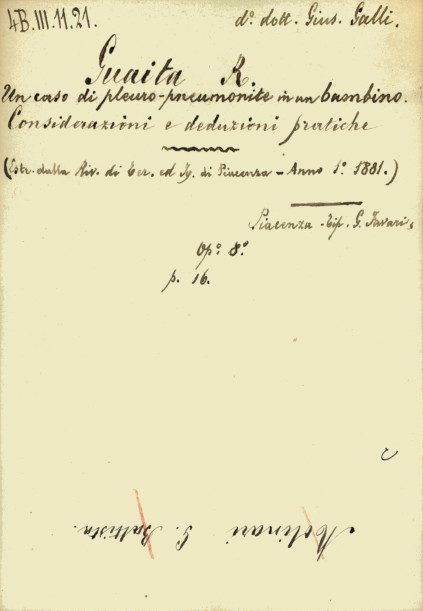 4B.III.11.21.
d.º dott. Gius. Galli.
Guaita R.
Un caso di pleuro-pneumonite in un bambino.
Considerazioni e deduzioni pratiche
(Estr. dalla Riv. di Ter. ed Ig. di Piacenza - Anno 1º 1881.)
Piacenza - Tip. G. Tavari,
Opº 8º
p. 16.
Molinari G. Battista.